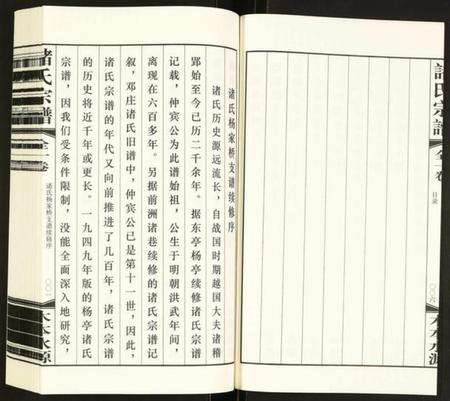 諸氏宗譜
全一卷
目录
〇〇六
木本水源
诸氏杨家桥支谱续修序
诸氏历史源远流长，自战国时期越国大夫诸稽
郢始至今已历二千余年。据东亭杨亭续修诸氏宗谱
记载，仲宾公为此谱始祖，公生于明朝洪武年间，
离现在六百多年。另据前洲诸巷续修的诸氏宗谱记
叙，邓庄诸氏旧谱中，仲宾公已是第十一世，因此，
诸氏宗谱的年代又向前推进了几百年，诸氏宗谱
的历史将近千年或更长。一九四九年版的杨亭诸氏
宗谱，因我们受条件限制，没能全面深入地研究，
諸氏宗譜
全一卷
诸氏杨家桥支谱续修序
木本水源